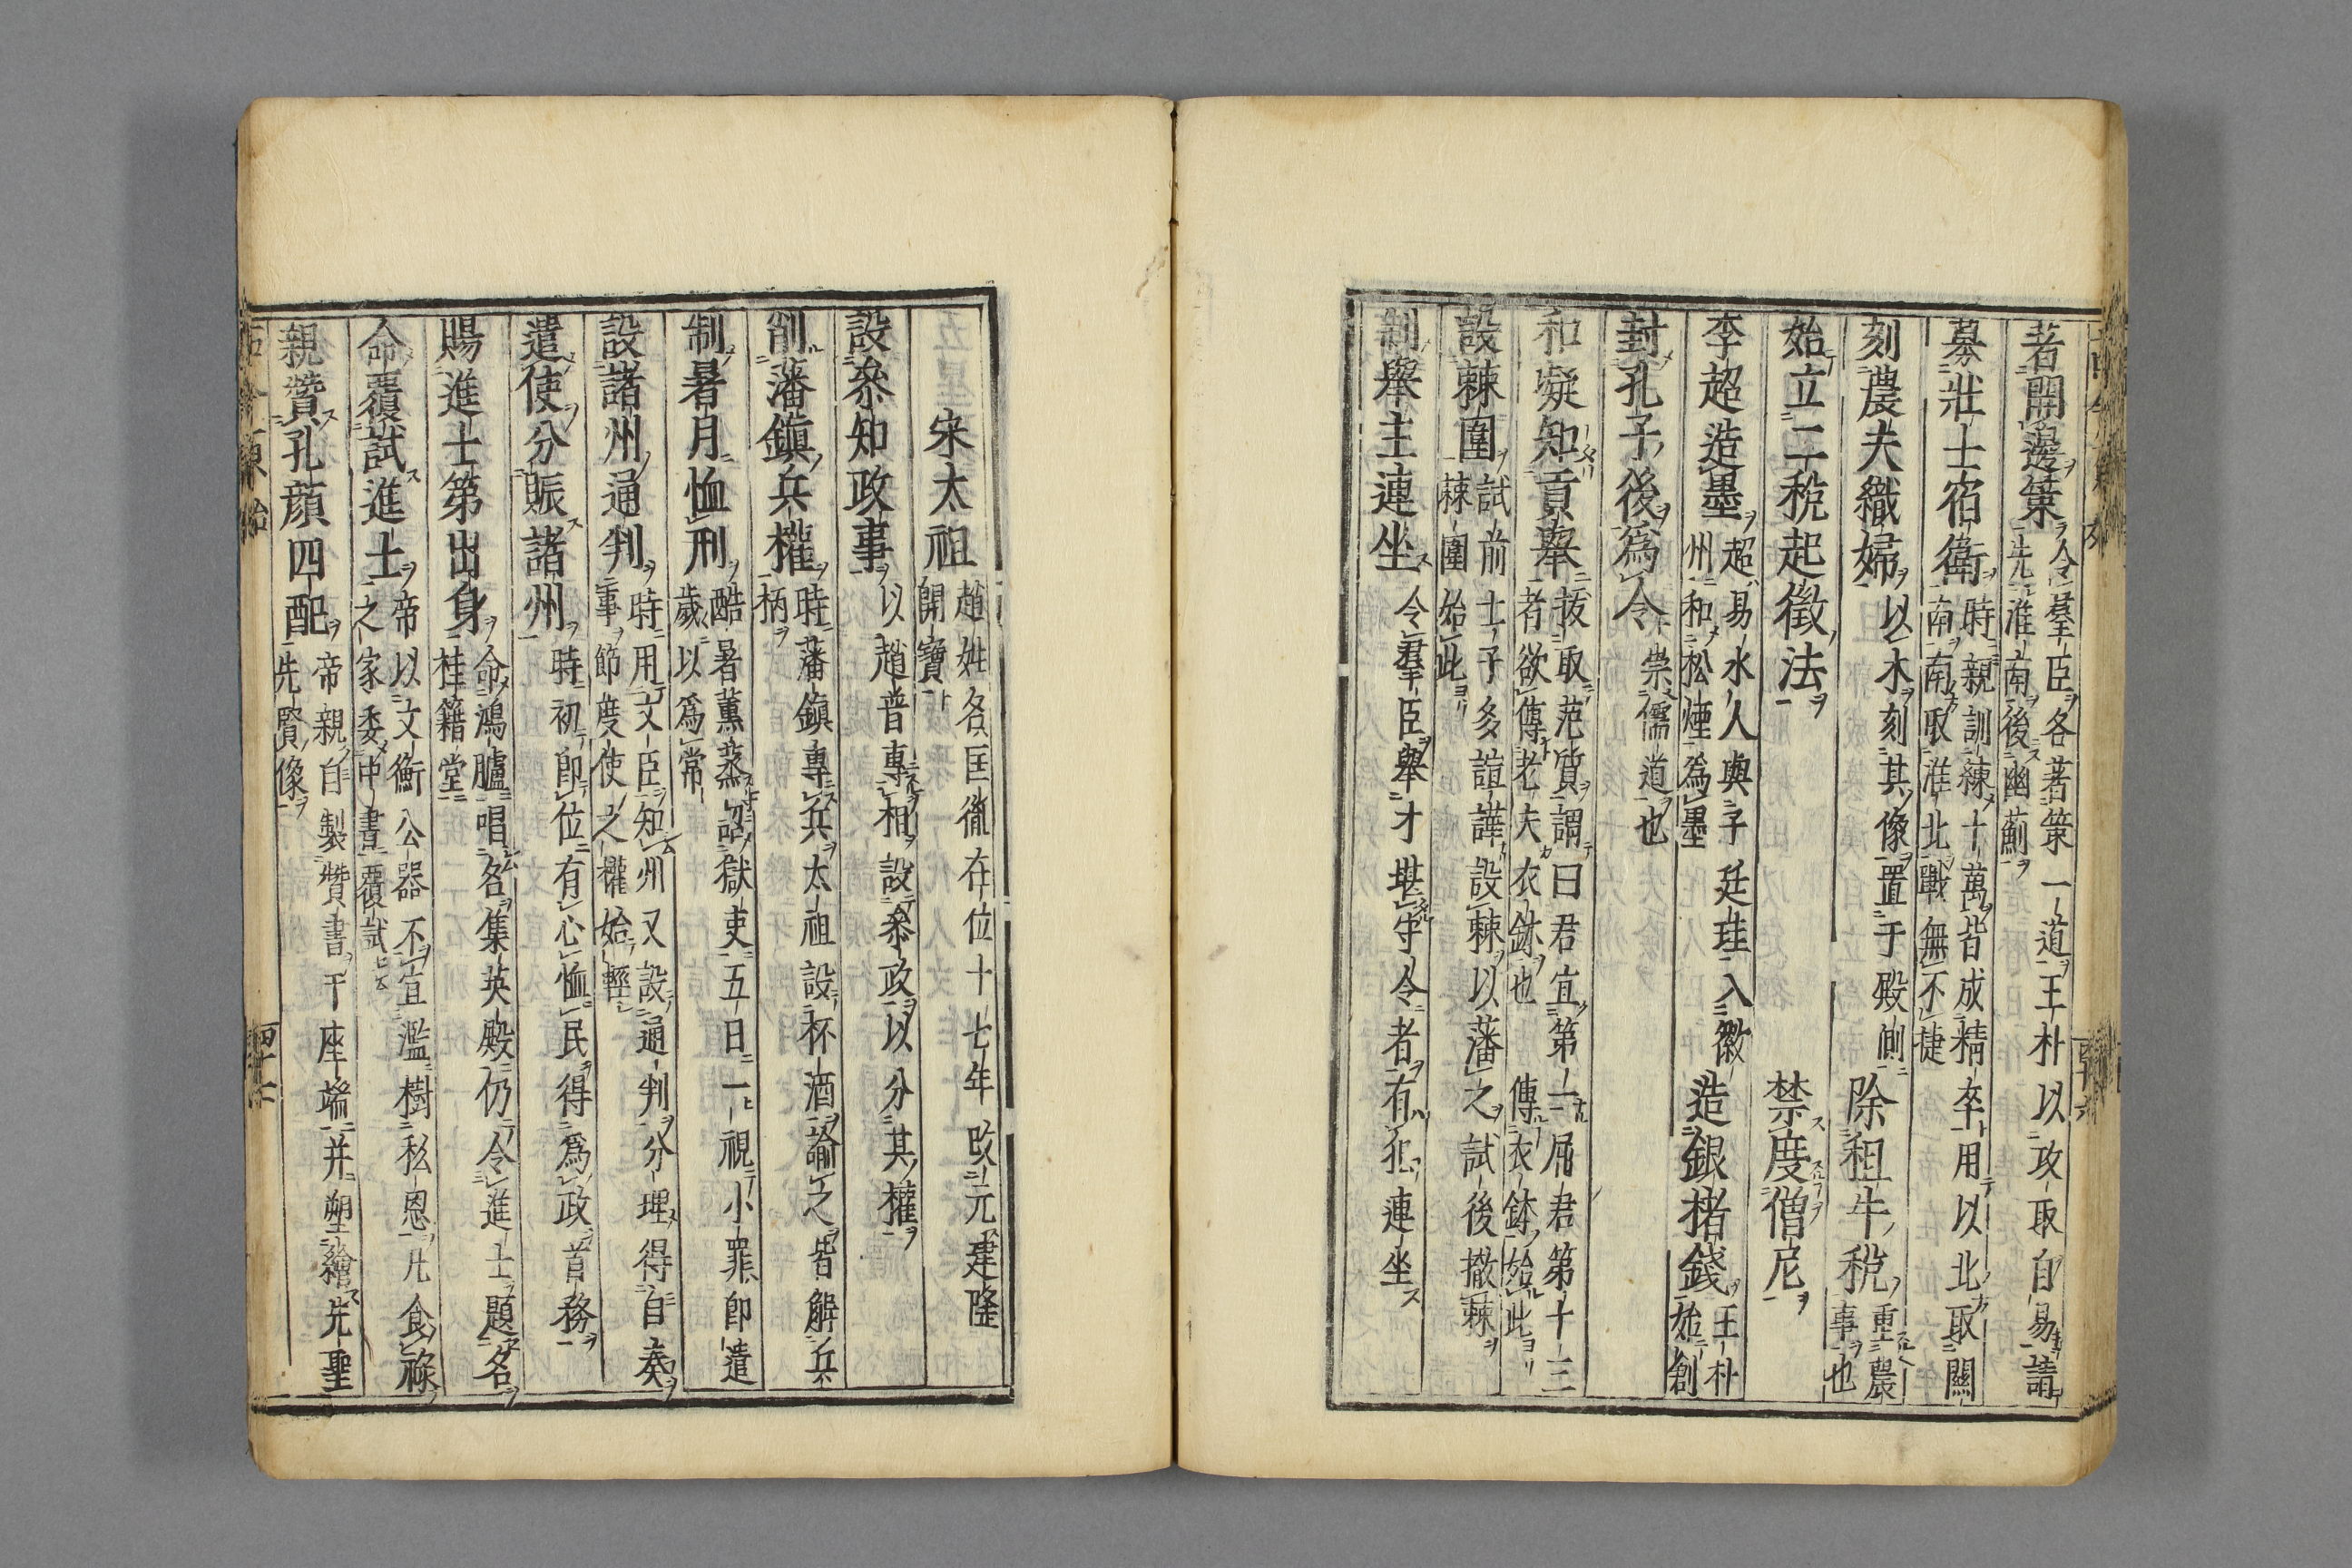 著開邊策 令羣臣各著策一道王朴以攻取自易請
先淮南後幽薊
募壯士宿衛 時親訓練十萬皆成精卒用以北取關
南南取淮北戰無不捷
刻農夫織婦 以木刻其像置于殿側 除租牛稅 重農
事也
始立二稅起徵法 禁度僧尼
李超造墨 超易水人與子廷珪入徽
州和松煙爲墨 造銀楮錢 王朴
始創
封孔子後爲令 崇儒道也
和凝知貢舉 拔取范質謂曰君宜第一屈君第十三
者欲傳老夫衣鉢也 傳衣鉢始此
設棘圍 試前士子多諠譁設棘以藩之試後撤棘
棘圍始此
制舉主連坐 令羣臣舉才堪守令者有犯連坐
宋太祖 趙姓名匡胤在位十七年改元建隆
開寶
設叅知政事 以趙普專相設叅政以分其權
削藩鎭兵權 時藩鎭專兵太祖設杯酒諭之皆解兵
柄
制暑月恤刑 酷暑薰蒸詔獄吏五日一視小罪即遣
歲以爲常
設諸州通判 時用文臣知州又設通判分理得自奏
事節度使之權始輕
遣使分賑諸州 時初即位有心恤民得爲政首務
賜進士第出身 命鴻臚唱名集英殿仍令進士題名
桂籍堂
命覆試進士 帝以文衡公器不宜濫樹私恩凢食祿
之家委中書覆試
親贊孔顔四配 帝親自製贊書于座端并塑繪先聖
先賢像